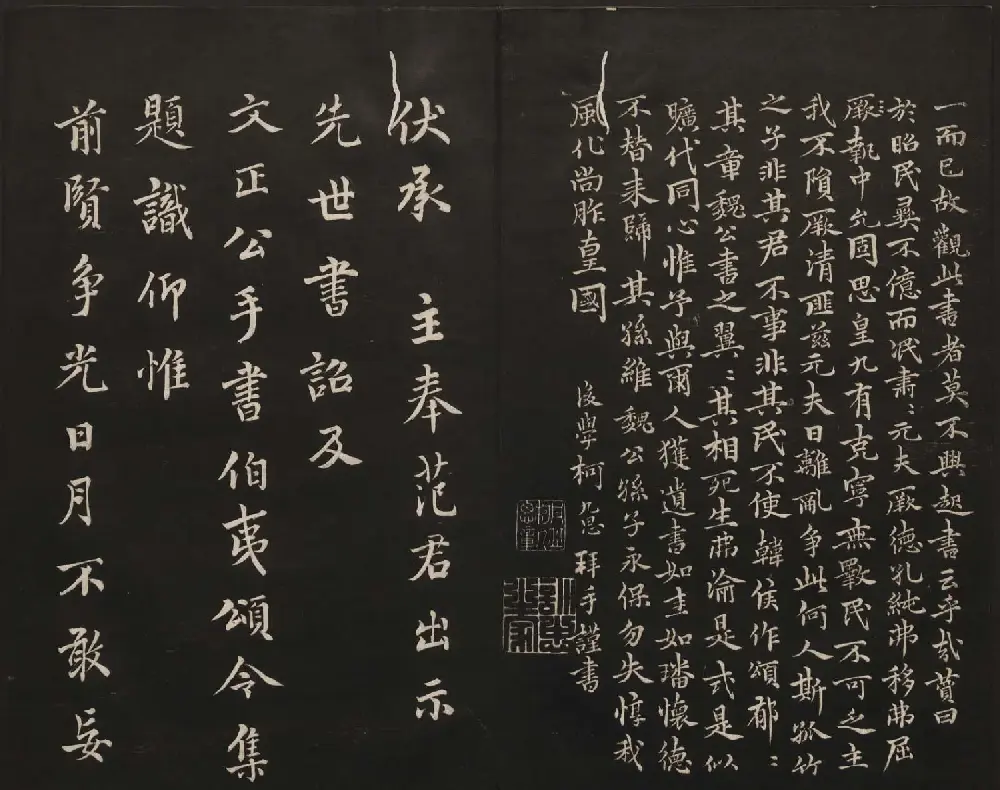 一而已故觀此書者莫不興起書云乎哉贊曰
於昭民彝不億而泯肅〻元夫厥德孔純弗移弗屈
厥執中允固思皇九有克寧無斁民不可乏主
我不隕厥清匪茲元夫日離亂爭此何人斯孤竹
之子非其君不事非其民不使韓侯作頌郁〻
其章魏公書之翼〻其相死生弗渝是式是似
曠代同心惟予與爾人獲遺書如圭如璠懷德
不替來歸其孫維魏公孫子永保勿失惇我
風化尚胙皇國
後學柯九思拜手謹書
伏承主奉范君出示
先世書詔及
文正公手書伯夷頌令集
題識仰惟
前賢爭光日月不敢妄